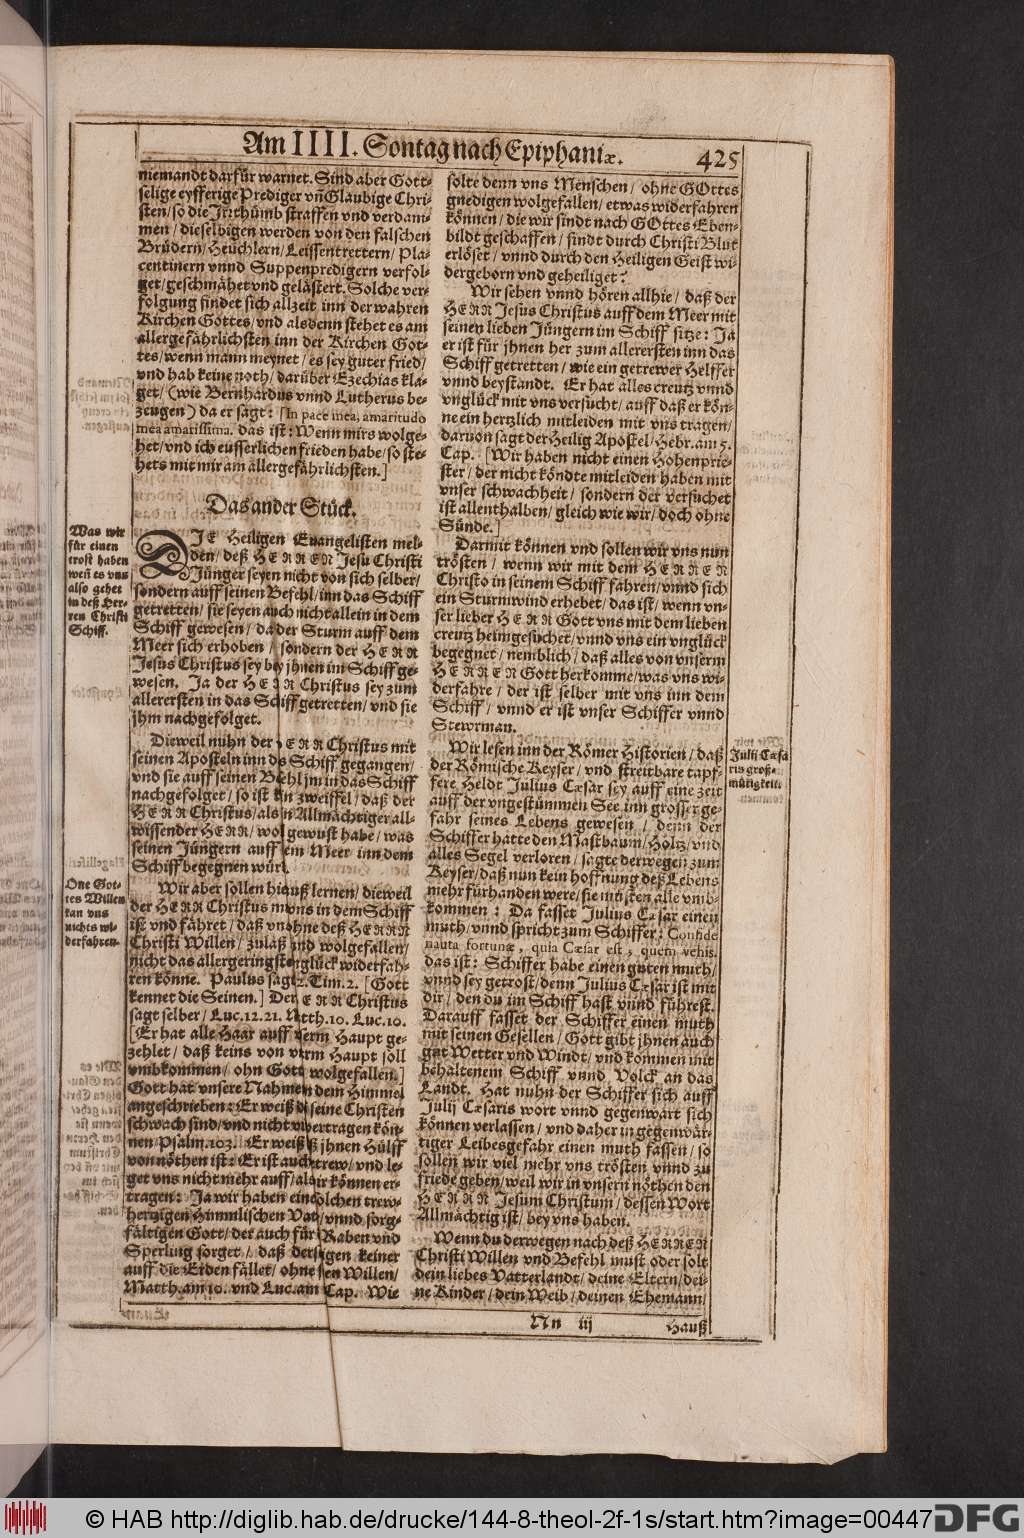 Am IIII. Sontag nach Epiphaniæ. 425
niemandt darfür warnet. Sind aber Gott-
selige eyfferige Prediger vñ Glaubige Chri-
sten/ so die Irrthümb straffen vnd verdam-
men/ dieselbigen werden von den falschen
Brüdern/ Heuchlern/ Leissentrettern/ Pla-
centinern vnnd Suppenpredigern verfol-
get/ geschmähet vnd gelästert. Solche ver-
folgung findet sich allzeit inn der wahren
Kirchen Gottes/ vnd alsdenn stehet es am
allergefährlichsten inn der Kirchen Got-
tes/ wenn mann meynet/ es sey guter fried/
vnd hab keine noth/ darüber Ezechias kla-
get/ (wie Bernhardus vnnd Lutherus be-
zeugen) da er sagt: [In pace mea, amaritudo
mea amarissima. das ist: Wenn mirs wolge-
het/ vnd ich eusserlichen frieden habe/ so ste-
hets mit mir am allergefährlichsten.]
Das ander Stück.
Was wir
für einen
trost haben
weñ es vns
also gehet
in deß Her-
ren Christi
Schiff.
DIE Heiligen Euangelisten mel-
den/ deß HERREN Jesu Christi
Jünger seyen nicht von sich selber/
sondern auff seinen Befehl/ inn das Schiff
getretten/ sie seyen auch nicht allein in dem
Schiff gewesen/ da der Sturm auff dem
Meer sich erhoben/ sondern der HERR
Jesus Christus sey bey jhnen im Schiff ge-
wesen. Ja der HERR Christus sey zum
allerersten in das Schiff getretten/ vnd sie
jhm nachgefolget.
Dieweil nuhn der ERR Christus mit
seinen Aposteln inn ds Schiff gegangen/
vnd sie auff seinen Befehl jm in das Schiff
nachgefolget/ so ist kein zweiffel/ daß der
HERR Christus/ als Allmächtiger all-
wissender HERR/ wol gewust habe/ was
seinen Jüngern auff em Meer inn dem
Schiff begegnen würd.
One Got-
tes Willen
kan vns
nichts wi-
derfahren.
Wir aber sollen hieauß lernen/ dieweil
der HERR Christus mit vns in dem Schiff
ist vnd fähret/ daß vns ohne deß HERRN
Christi Willen/ zulaß vnd wolgefallen/
nicht das allergeringste vnglück widerfah-
ren könne. Paulus sagt 2. Tim. 2. [Gott
kennet die Seinen.] Der ERR Christus
sagt selber/ Luc. 12. 21. Matth. 10. Luc. 10.
[Er hat alle Haar auff vnserm Haupt ge-
zehlet/ daß keins von vnserm Haupt soll
vmbkommen/ ohn Gott wolgefallen.]
Gott hat vnsere Nahmen in dem Himmel
angeschrieben: Er weiß dz seine Christen
schwach sind/ vnd nicht vil vertragen kön-
nen/ Psalm. 103. Er weiß dz jhnen Hülff
von nöthen ist: Er ist auch trew/ vnd le-
get vns nicht mehr auff/ als wir können er-
tragen: Ja wir haben ein solchen trew-
hertzigen Himmlischen Vat/ vnnd sorg-
fältigen Gott/ der auch für Raben vnd
Sperling sorget/ daß derselbigen keiner
auff die Erden fället/ ohne sen Willen/
Matth. am 10. vnd Luc. am Cap. Wie
solte denn vns Menschen/ ohne GOttes
gnedigen wolgefallen/ etwas widerfahren
können/ die wir sindt nach GOttes Eben-
bildt geschaffen/ sindt durch Christi Blut
erlöset/ vnnd durch den Heiligen Geist wi-
dergeborn vnd geheiliget?
Wir sehen vnnd hören allhie/ daß der
HERR Jesus Christus auff dem Meer mit
seinen lieben Jüngern im Schiff sitze: Ja
er ist für jhnen her zum allerersten inn das
Schiff getretten/ wie ein getrewer Helffer
vnnd beystandt. Er hat alles creutz vnnd
vnglück mit vns versucht/ auff daß er kön-
ne ein hertzlich mitleiden mit vns tragen/
daruon sagt der Heilig Apostel/ Hebr. am 5.
Cap. [Wir haben nicht einen Hohenprie-
ster/ der nicht köndte mitleiden haben mit
vnser schwachheit/ sondern der versuchet
ist allenthalben/ gleich wie wir/ doch ohne
Sünde.]
Darmit können vnd sollen wir vns nun
trösten/ wenn wir mit dem HERREN
Christo in seinem Schiff fahren/ vnnd sich
ein Sturmwind erhebet/ das ist/ wenn vn-
ser lieber HERR Gott vns mit dem lieben
creutz heimgesuchet/ vnnd vns ein vnglück
begegnet/ nemblich/ daß alles von vnserm
HERREN Gott herkomme/ was vns wi-
derfahre/ der ist selber mit vns inn dem
Schiff/ vnnd er ist vnser Schiffer vnnd
Stewrman.
Julij Cæsa
ris groß-
mütigkeit.
Wir lesen inn der Römer Historien/ daß
der Römische Keyser/ vnd streitbare tapf-
fere Heldt Julius Cæsar sey auff eine zeit
auff der vngestümmen See inn grosser ge-
fahr seines Lebens gewesen/ denn der
Schiffer hatte den Mastbaum/ Holtz/ vnd
alles Segel verloren/ sagte derwegen zum
Keyser/ daß nun kein hoffnung deß Lebens
mehr fürhanden were/ sie müsten alle vmb-
kommen: Da fasset Julius Cæsar einen
muth/ vnnd spricht zum Schiffer: Confide
nauta fortunæ, quia Cæsar est, quem vehis.
das ist: Schiffer habe einen guten muth/
vnnd sey getrost/ denn Julius Cæsar ist mit
dir/ den du im Schiff hast vnnd führest.
Darauff fasset der Schiffer einen muth
mit seinen Gesellen/ Gott gibt jhnen auch
gut Wetter vnd Windt/ vnd kommen mit
behaltenem Schiff vnnd Volck an das
Landt. Hat nuhn der Schiffer sich auff
Julij Cæsaris wort vnnd gegenwart sich
können verlassen/ vnd daher in gegenwär-
tiger Leibesgefahr einen muth fassen/ so
sollen wir viel mehr vns trösten vnnd zu
friede geben/ weil wir in vnsern nöthen den
HERRN Jesum Christum/ dessen Wort
Allmächtig ist/ bey vns haben.
Wenn du derwegen nach deß HERREN
Christi Willen vnd Befehl must oder solt
dein liebes Vatterlandt/ deine Eltern/ dei-
ne Kinder/ dein Weib/ deinen Ehemann/
Nn iij Hauß
© HAB http://diglib.hab.de/drucke/144-8-theol-2f-1s/start.htm?image=00447
DFG